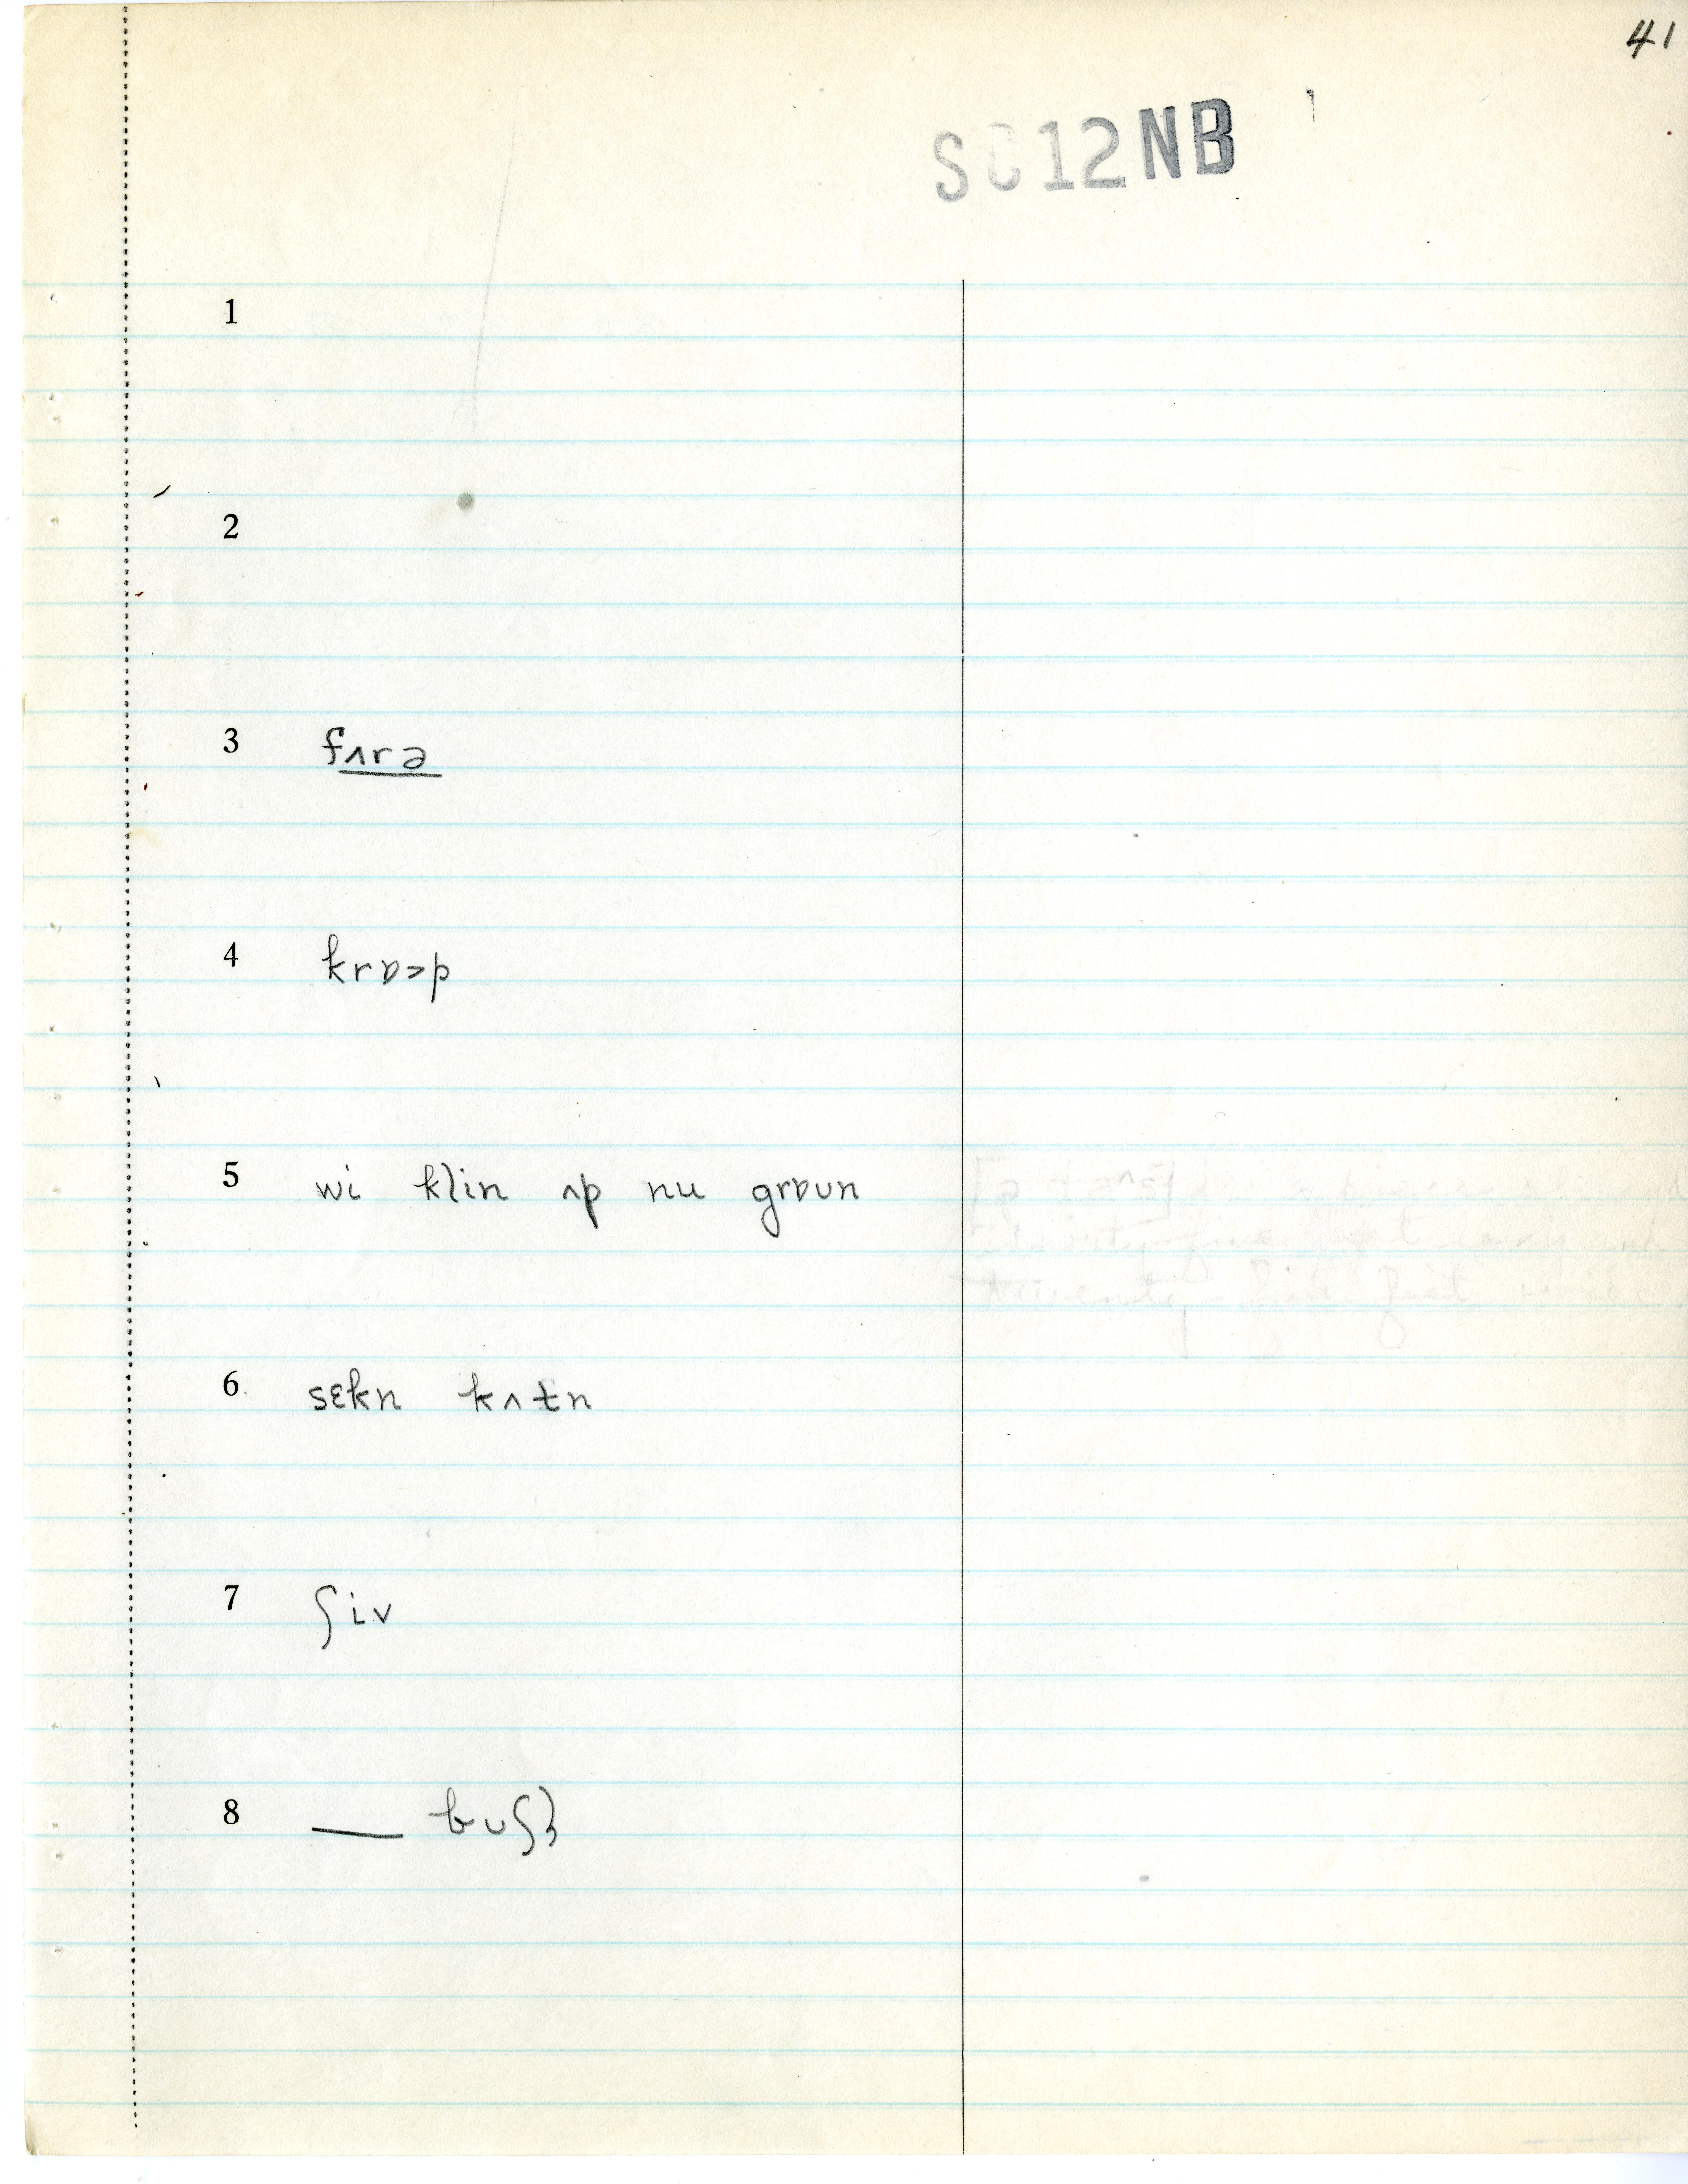 41
SC12NB
1
2
3 fʌrə
4 krɒ>p
5 wi klin ʌp nu grɒun
6 sɛkn kʌtn
7 ʃiv
8 — buʃ